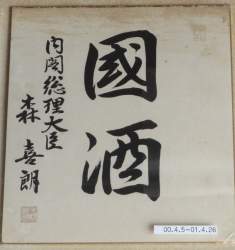 國酒
内閣総理大臣
森喜朗
00.4.5~01.4.26